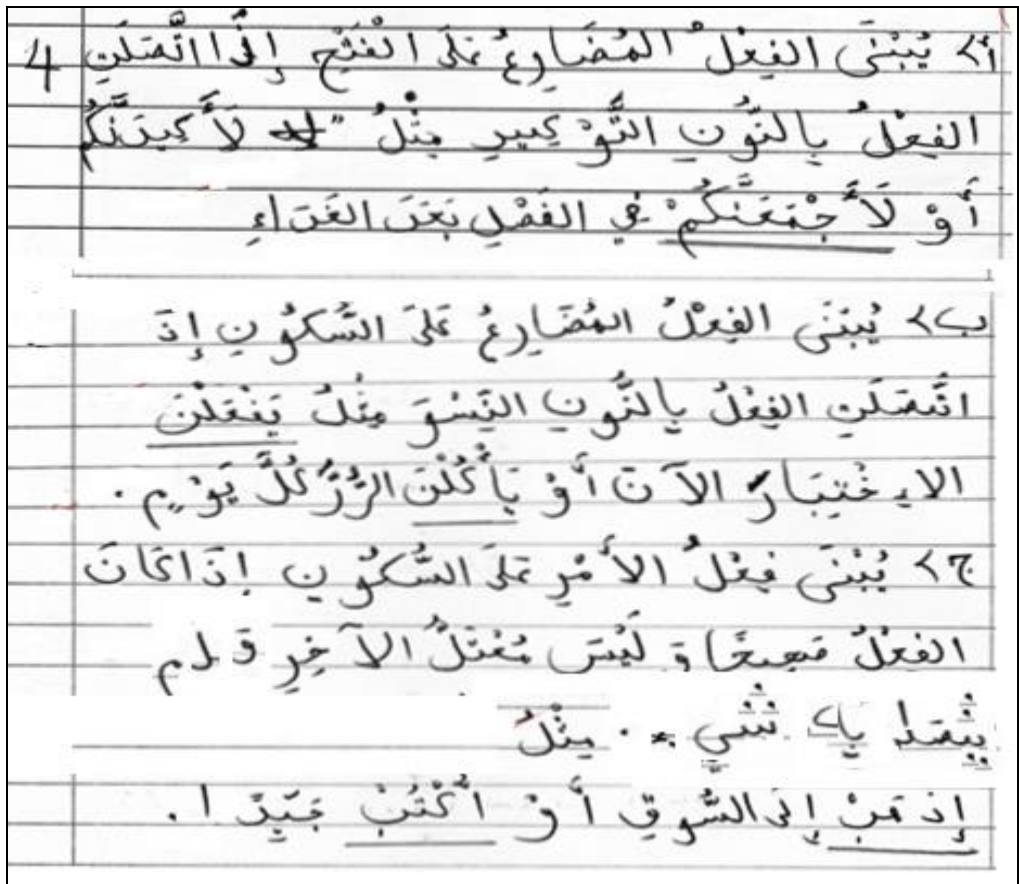 أ> يُبْنَى الفِعْلُ المُضَارِعُ عَلَى الفَتْحِ إِذَا اتَّصَلَتِ 4
الفِعْلُ بِالنُّونِ التَّوْكِيدِ مِثْلُ " لَأَكِيدَنَّكُمْ
أَوْ لَأَجْمَعَنَّكُمْ فِي الفَصْلِ بَعْدَ الغَدَاءِ
ب> يُبْنَى الفِعْلُ المُضَارِعُ عَلَى السُّكُونِ إِذَ
اتَّصَلَتِ الفِعْلُ بِالنُّونِ النِّسْوَ مِثْلُ يَفْعَلْنَ
الاِخْتِبَارَ الآنَ أَوْ يَأْكُلْنَ الرُّزَّ كُلَّ يَوْمٍ.
ج> يُبْنَى فِعْلُ الأَمْرِ عَلَى السُّكُونِ إِذَا كَانَ
الفِعْلُ صَحِيحًا وَ لَيْسَ مُعْتَلُّ الآخِرِ وَ لم
بِأ شئي . مِثْلُ
إِذْهَبْ إِلَى السُّوقِ أَوْ اُكْتُبْ جَيِّدًا.